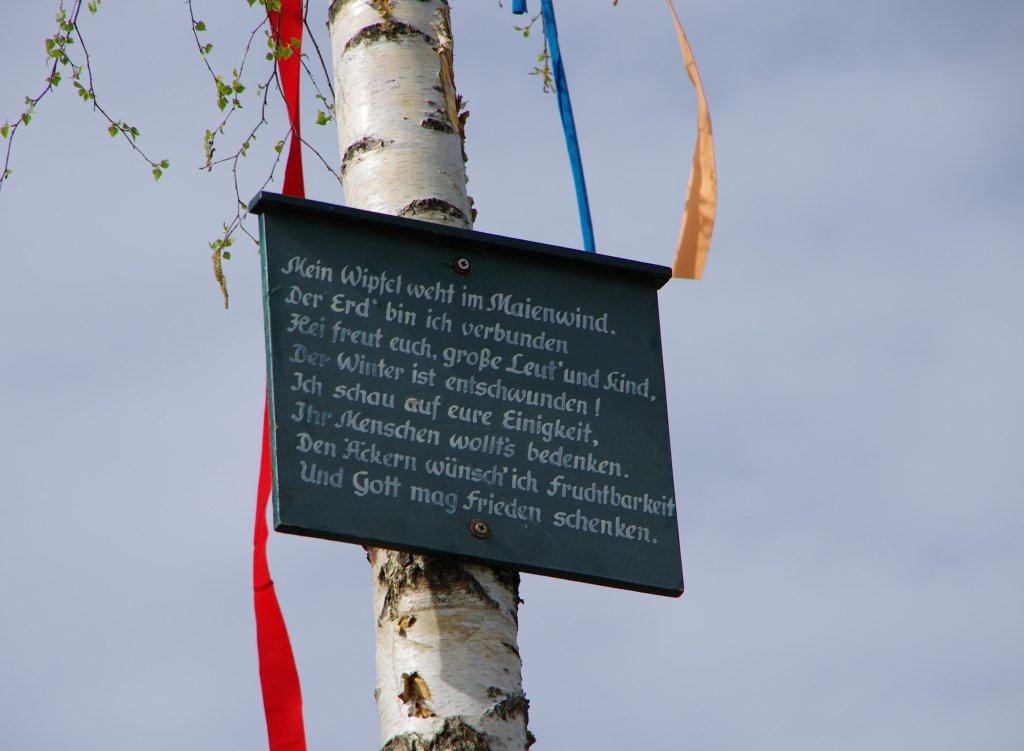 Mein Wipfel weht im Maienwind.
Der Erd' bin ich verbunden
Hei freut euch, große Leut' und Kind,
Der Winter ist entschwunden!
Ich schau auf eure Einigkeit,
Ihr Menschen wollt's bedenken.
Den Äckern wünsch' ich Fruchtbarkeit
Und Gott mag Frieden schenken.